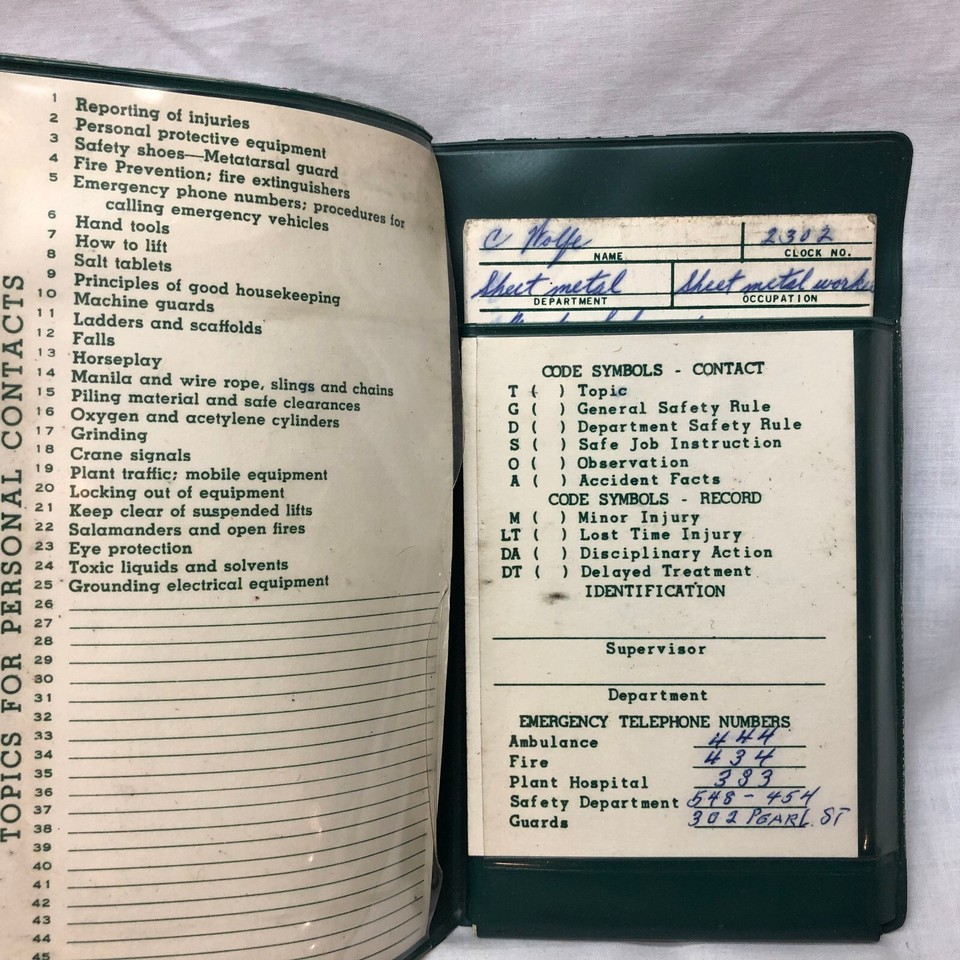 TOPICS FOR PERSONAL CONTACTS
1 Reporting of injuries
2 Personal protective equipment
3 Safety shoes—Metatarsal guard
4 Fire Prevention; fire extinguishers
5 Emergency phone numbers; procedures for
calling emergency vehicles
6 Hand tools
7 How to lift
8 Salt tablets
9 Principles of good housekeeping
10 Machine guards
11 Ladders and scaffolds
12 Falls
13 Horseplay
14 Manila and wire rope, slings and chains
15 Piling material and safe clearances
16 Oxygen and acetylene cylinders
17 Grinding
18 Crane signals
19 Plant traffic; mobile equipment
20 Locking out of equipment
21 Keep clear of suspended lifts
22 Salamanders and open fires
23 Eye protection
24 Toxic liquids and solvents
25 Grounding electrical equipment
26
27
28
29
30
31
32
33
34
35
36
37
38
39
40
41
42
43
44
45
C Wolfe 2302
NAME CLOCK NO.
Sheet metal Sheet metal worker
DEPARTMENT OCCUPATION
CODE SYMBOLS - CONTACT
T ( ) Topic
G ( ) General Safety Rule
D ( ) Department Safety Rule
S ( ) Safe Job Instruction
O ( ) Observation
A ( ) Accident Facts
CODE SYMBOLS - RECORD
M ( ) Minor Injury
LT ( ) Lost Time Injury
DA ( ) Disciplinary Action
DT ( ) Delayed Treatment
IDENTIFICATION
Supervisor
Department
EMERGENCY TELEPHONE NUMBERS
Ambulance 444
Fire 434
Plant Hospital 333
Safety Department 548 - 454
Guards 302 PEARL ST